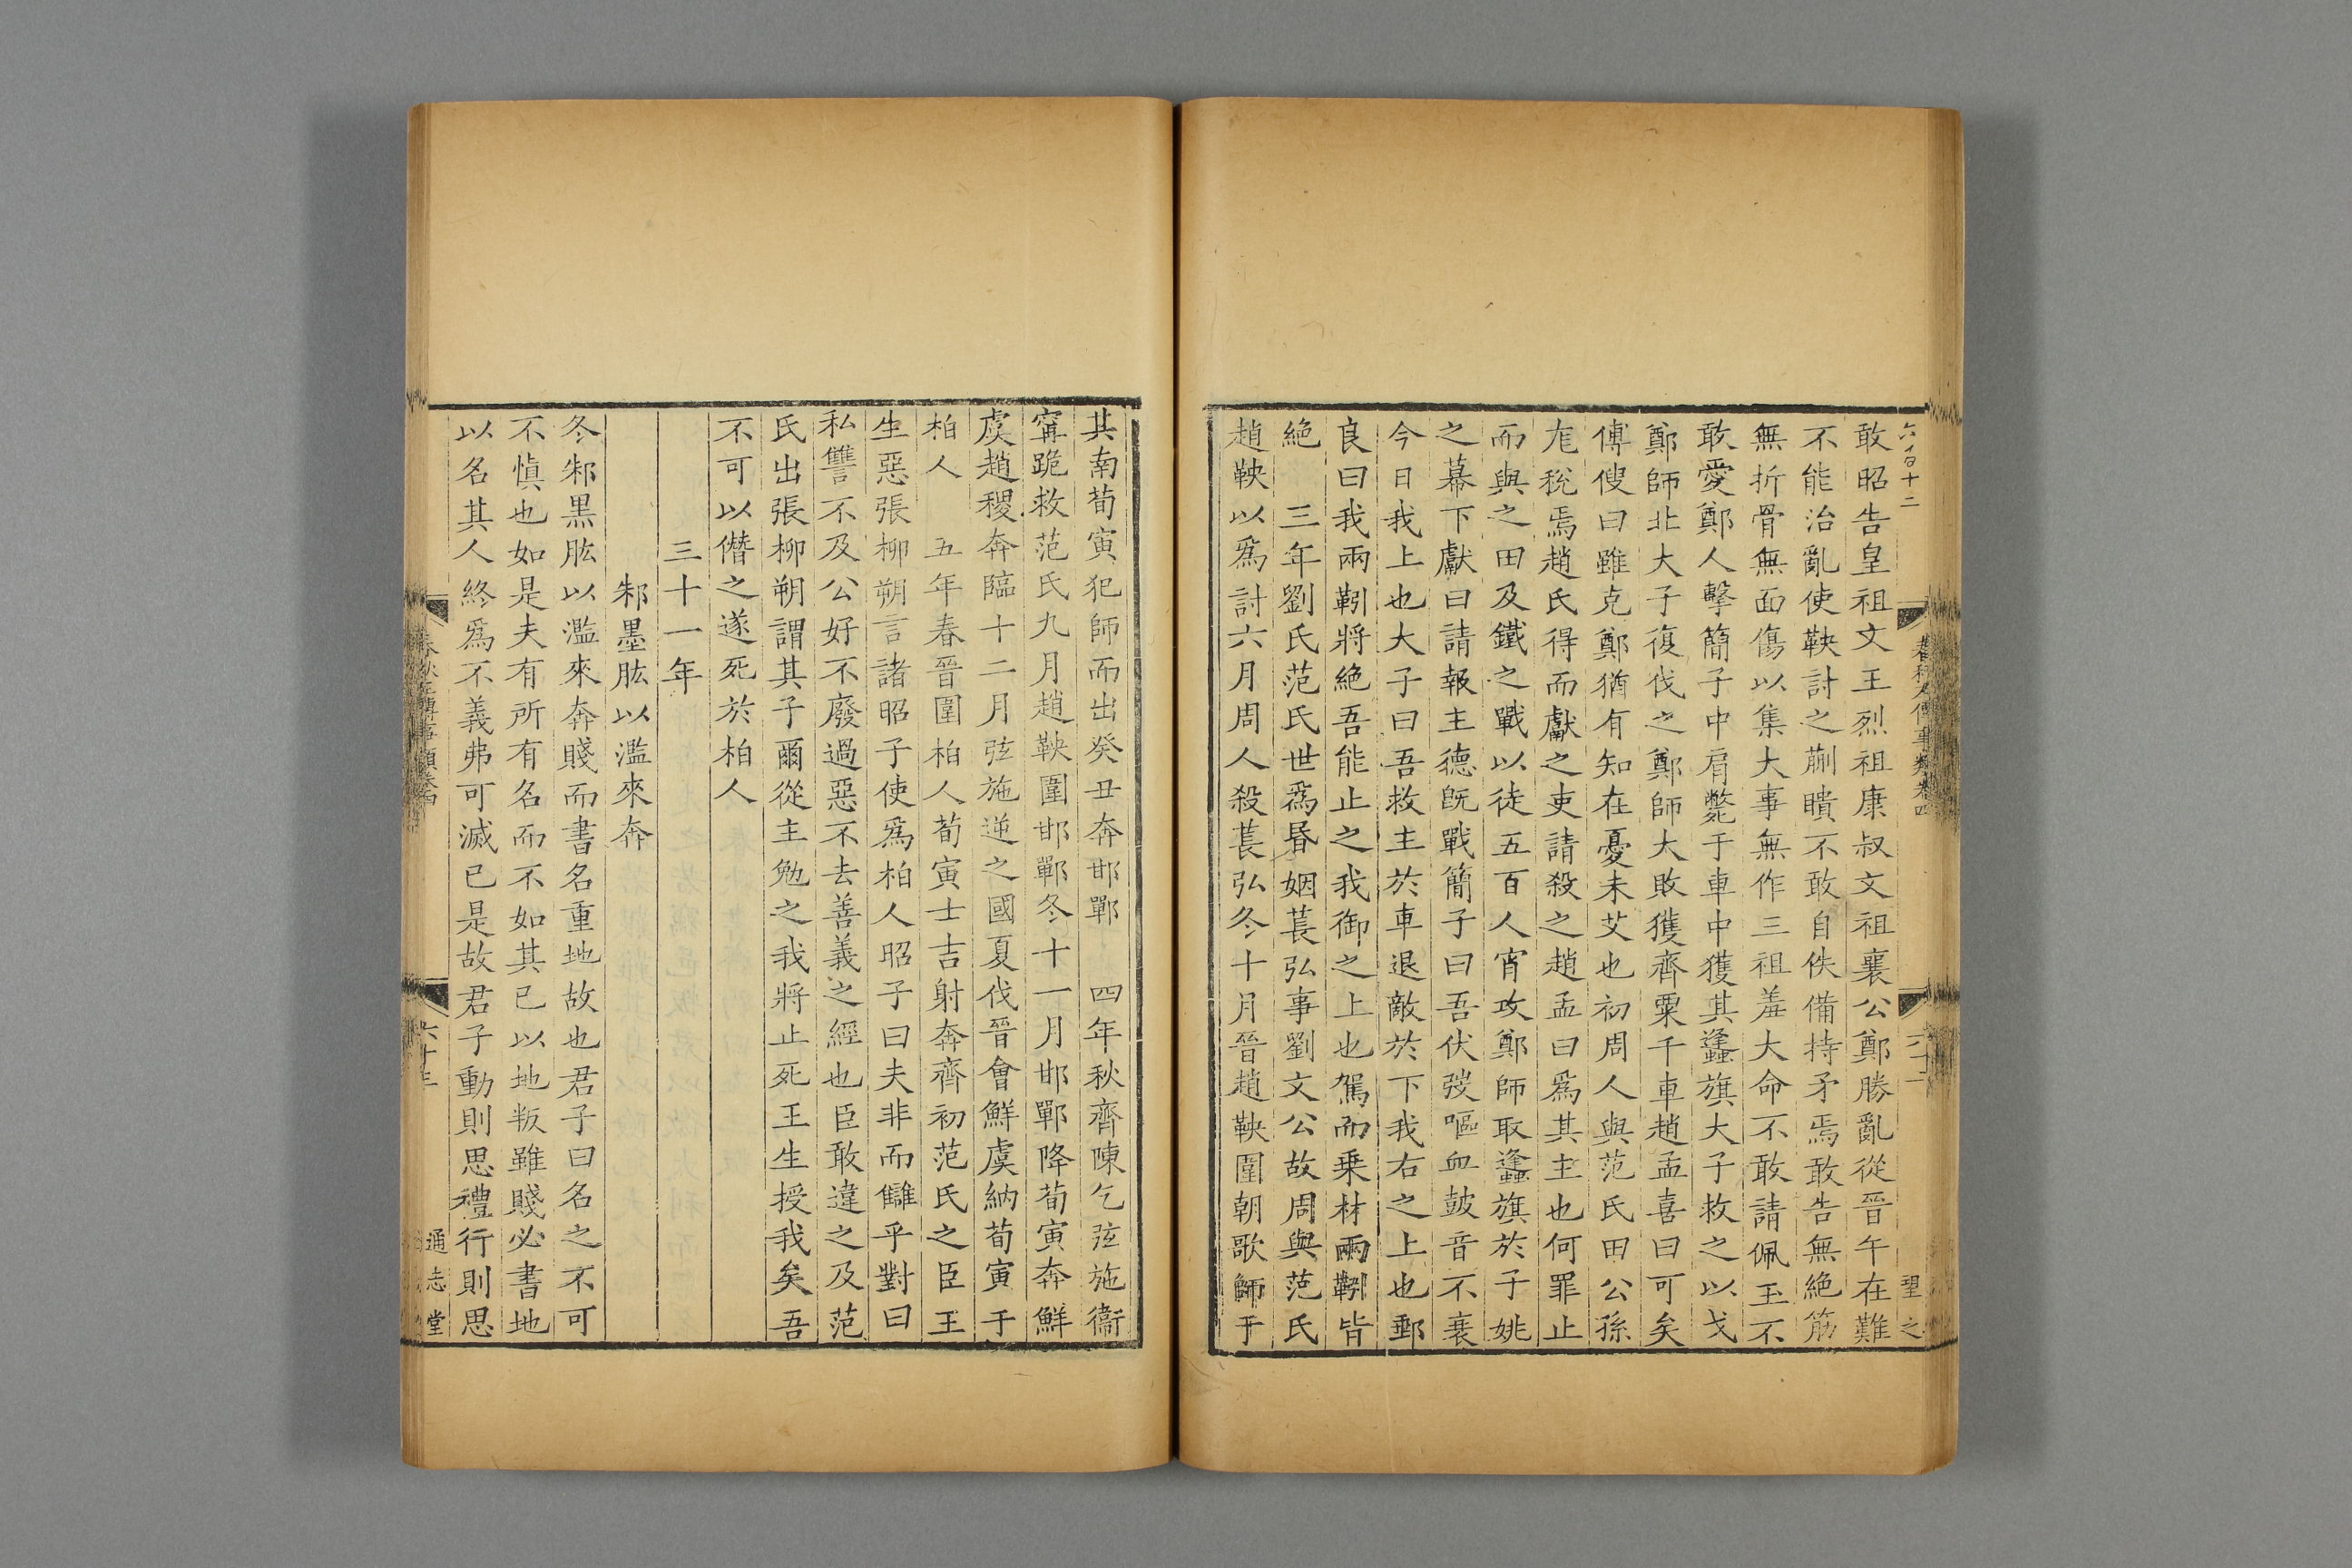 六百十二
春秋左傳事類卷四
六十二
望之
敢昭告皇祖文王烈祖康叔文祖襄公鄭勝亂從晉午在難
不能治亂使鞅討之蒯聵不敢自佚備持矛焉敢告無絶筋
無折骨無面傷以集大事無作三祖羞大命不敢請佩玉不
敢愛鄭人擊簡子中肩斃于車中獲其蠭旗大子救之以戈
鄭師北大子復伐之鄭師大敗獲齊粟千車趙孟喜曰可矣
傅傁曰雖克鄭猶有知在憂未艾也初周人與范氏田公孫
尨稅焉趙氏得而獻之吏請殺之趙孟曰爲其主也何罪止
而與之田及鐵之戰以徒五百人宵攻鄭師取蠭旗於子姚
之幕下獻曰請報主德旣戰簡子曰吾伏弢嘔血鼓音不衰
今日我上也大子曰吾救主於車退敵於下我右之上也郵
良曰我兩靷將絶吾能止之我御之上也駕而乗材兩靷皆
絶　三年劉氏范氏世爲昬姻萇弘事劉文公故周與范氏
趙鞅以爲討六月周人殺萇弘冬十月晉趙鞅圍朝歌師于
其南荀寅犯師而出癸丑奔邯鄲　四年秋齊陳乞弦施衞
寗跪救范氏九月趙鞅圍邯鄲冬十一月邯鄲降荀寅奔鮮
虞趙稷奔臨十二月弦施逆之國夏伐晉會鮮虞納荀寅于
柏人　五年春晉圍柏人荀寅士吉射奔齊初范氏之臣王
生惡張柳朔言諸昭子使爲柏人昭子曰夫非而讎乎對曰
私讐不及公好不廢過惡不去善義之經也臣敢違之及范
氏出張柳朔謂其子爾從主勉之我將止死王生授我矣吾
不可以僭之遂死於柏人
三十一年
邾墨肱以濫來奔
冬邾黒肱以濫來奔賤而書名重地故也君子曰名之不可
不愼也如是夫有所有名而不如其已以地叛雖賤必書地
以名其人終爲不義弗可滅已是故君子動則思禮行則思
春秋左傳事類卷四
六十三
通志堂